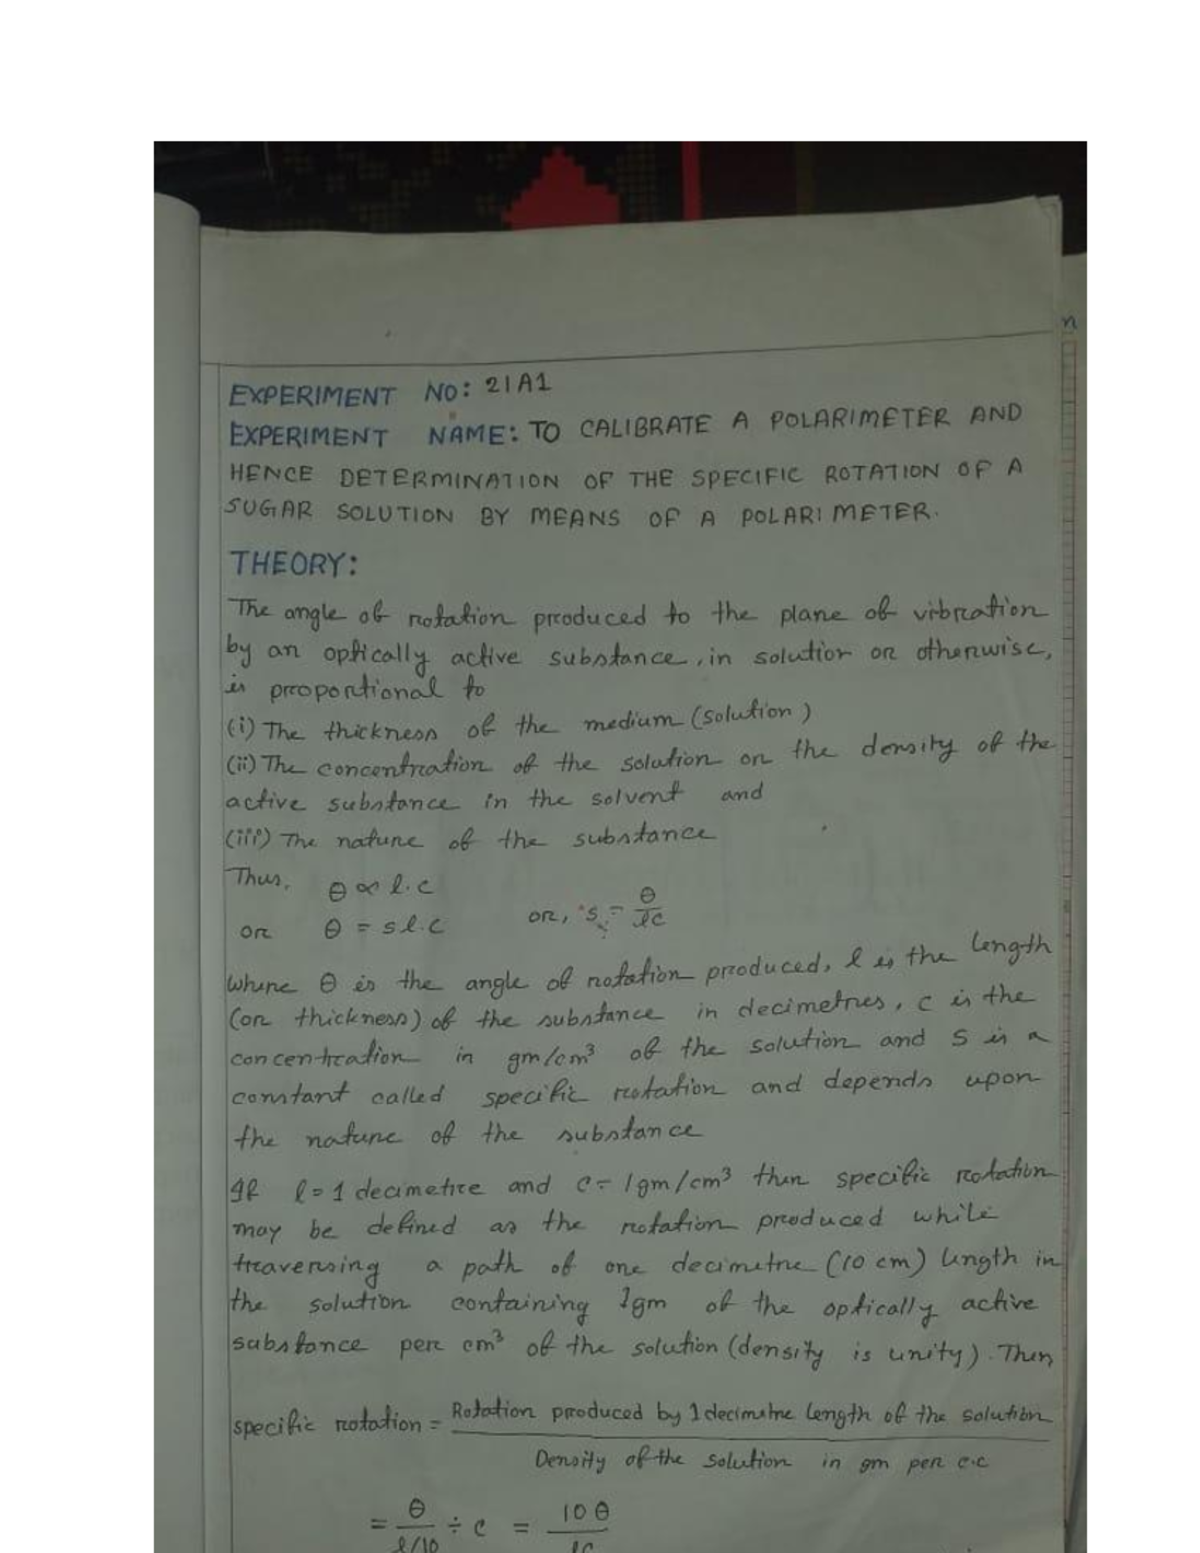 n
EXPERIMENT NO: 21A1
EXPERIMENT NAME: TO CALIBRATE A POLARIMETER AND
HENCE DETERMINATION OF THE SPECIFIC ROTATION OF A
SUGAR SOLUTION BY MEANS OF A POLARIMETER.
THEORY:
The angle of rotation produced to the plane of vibration
by an optically active substance, in solution or otherwise,
is proportional to
(i) The thickness of the medium (solution)
(ii) The concentration of the solution or the density of the
active substance in the solvent and
(iii) The nature of the substance
Thus, θ ∝ l.c
or θ = sl.c or, s = θ/lc
where θ is the angle of rotation produced, l is the length
(or thickness) of the substance in decimetres, c is the
concentration in gm/cm³ of the solution and S is a
constant called specific rotation and depends upon
the nature of the substance
If l = 1 decimetre and c = 1gm/cm³ then specific rotation
may be defined as the rotation produced while
traversing a path of one decimetre (10 cm) length in
the solution containing 1gm of the optically active
substance per cm³ of the solution (density is unity). Then
specific rotation = Rotation produced by 1 decimetre length of the solution
Density of the solution in gm per c.c
= θ / l/10 ÷ c = 10 θ / lc